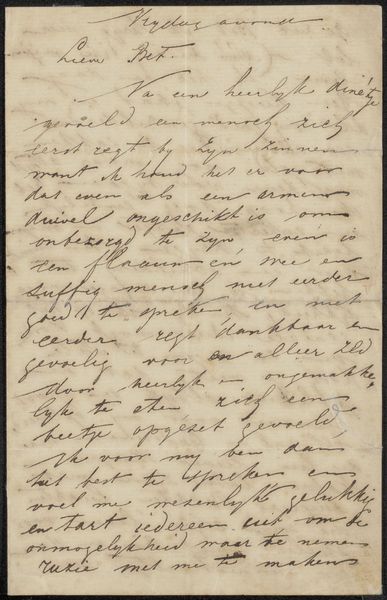 Vrydag avond.
Lieve Bet.
Na een heerlyk dinétje
gevoeld een mensch zich
eerst regt by zyn zinnen
want ik houd het er voor
dat even als een armen
duivel ongeschikt is om
onbezorgd te zyn even is
een flaauw en wee en
suffig mensch niet eerder
goed te spreken en niet
eerder regt dankbaar en
gevoelig voor en allier
door heerlyk ongemakke
lyk te eten zich een
beetje opgezet gevoeld,
Ik voor my ben dan
het best te spreken en
voel me wezenlyk gelukkig
en tart iedereen uit om de
onmogelykheid waar te nemen
ruzie met me te maken